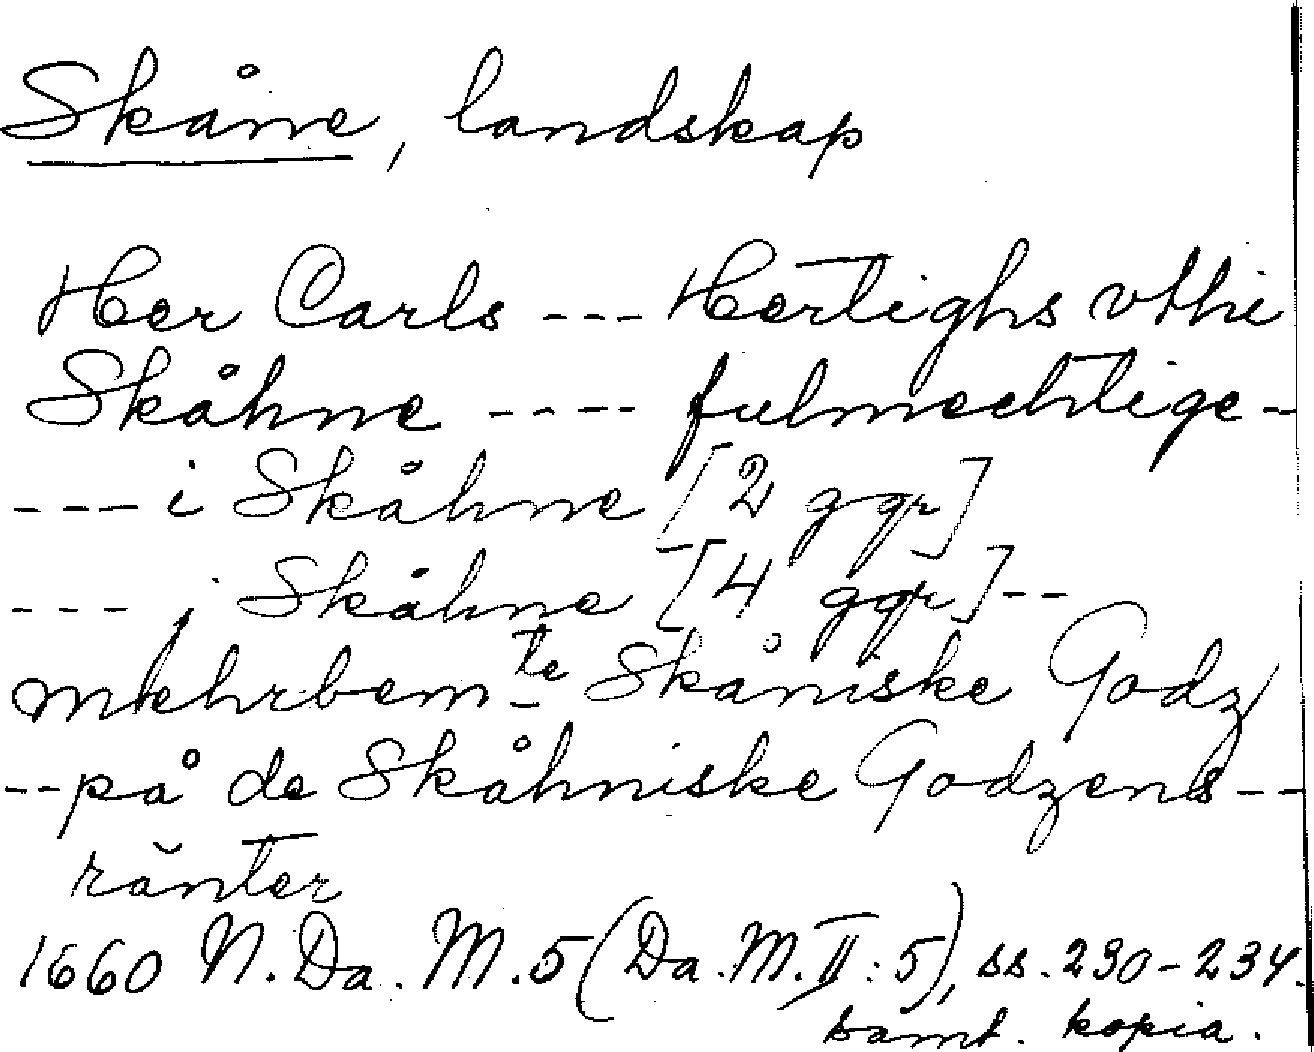 Skåne, landskap
Her Carls --- Hertighs vthi
Skåhne ---- fulmechtige -
--- i Skåhne [2 ggr]
--- j Skåhne [4 ggr] --
mehrbem te Skåniske Godz
-- på de Skåhniske Godzens --
ränter
1660 N. Da. M. 5 (Da. M. II: 5), ss. 230-234.
samt. kopia.